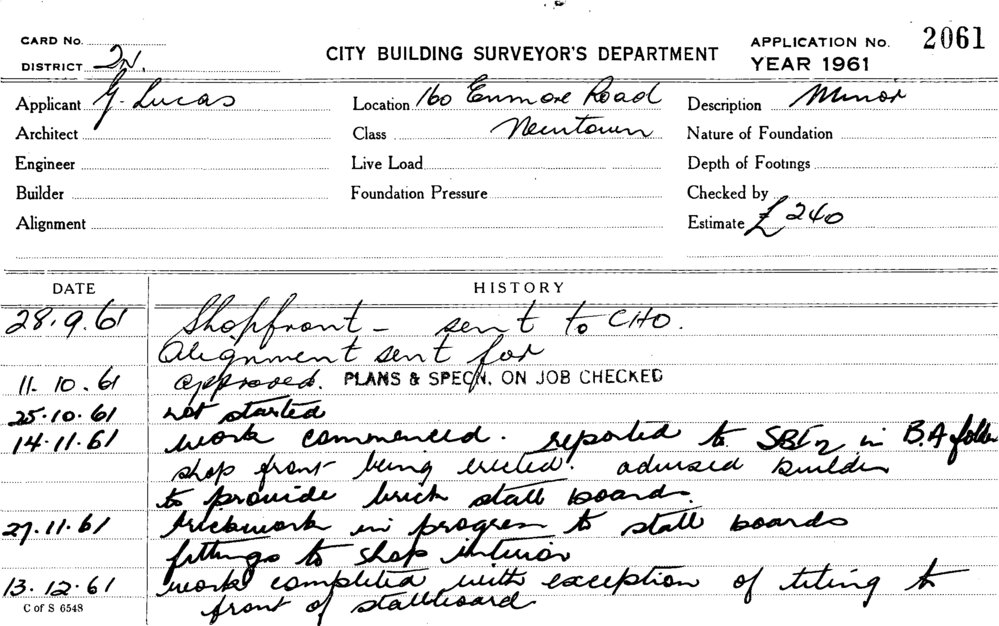 CARD No.
DISTRICT 2N.
CITY BUILDING SURVEYOR'S DEPARTMENT
APPLICATION No. 2061
YEAR 1961
Applicant G. Lucas
Location 160 Enmore Road
Description Minor
Architect
Class Newtown
Nature of Foundation
Engineer
Live Load
Depth of Footings
Builder
Foundation Pressure
Checked by
Alignment
Estimate £240
DATE HISTORY
28.9.61 Shopfront - sent to CHO.
Alignment sent for
11.10.61 approved. PLANS & SPECN. ON JOB CHECKED
25.10.61 not started
14.11.61 work commenced. reported to in B.A folder
shop front being erected. advised builder
to provide brick stall boards.
27.11.61 brickwork in progress to stall boards
fittings to shop interior
13.12.61 work completed with exception of tiling to
front of stallboard
C of S 6548